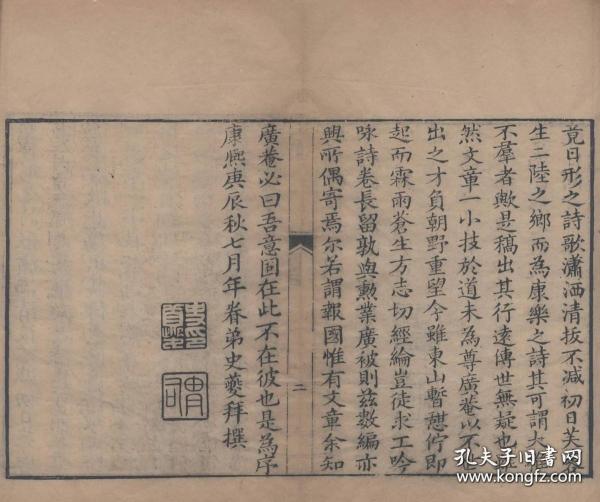 竟日形之詩歌瀟洒清拔不減初日芙
生二陸之鄉而為康樂之詩其可謂大雅
不羣者歟是稿出其行遠傳世無疑也
然文章一小技於道未為尊廣菴以不
出之才負朝野重望今雖東山暫憩佇即
起而霖雨蒼生方志切經綸豈徒求工吟
咏詩卷長留孰與勲業廣被則兹數編亦
興所偶寄焉尔若謂報國惟有文章余知
二
廣菴必曰吾意固在此不在彼也是為序
康熙庚辰秋七月年眷弟史夔拜撰
孔夫子旧书网
www.kongfz.com